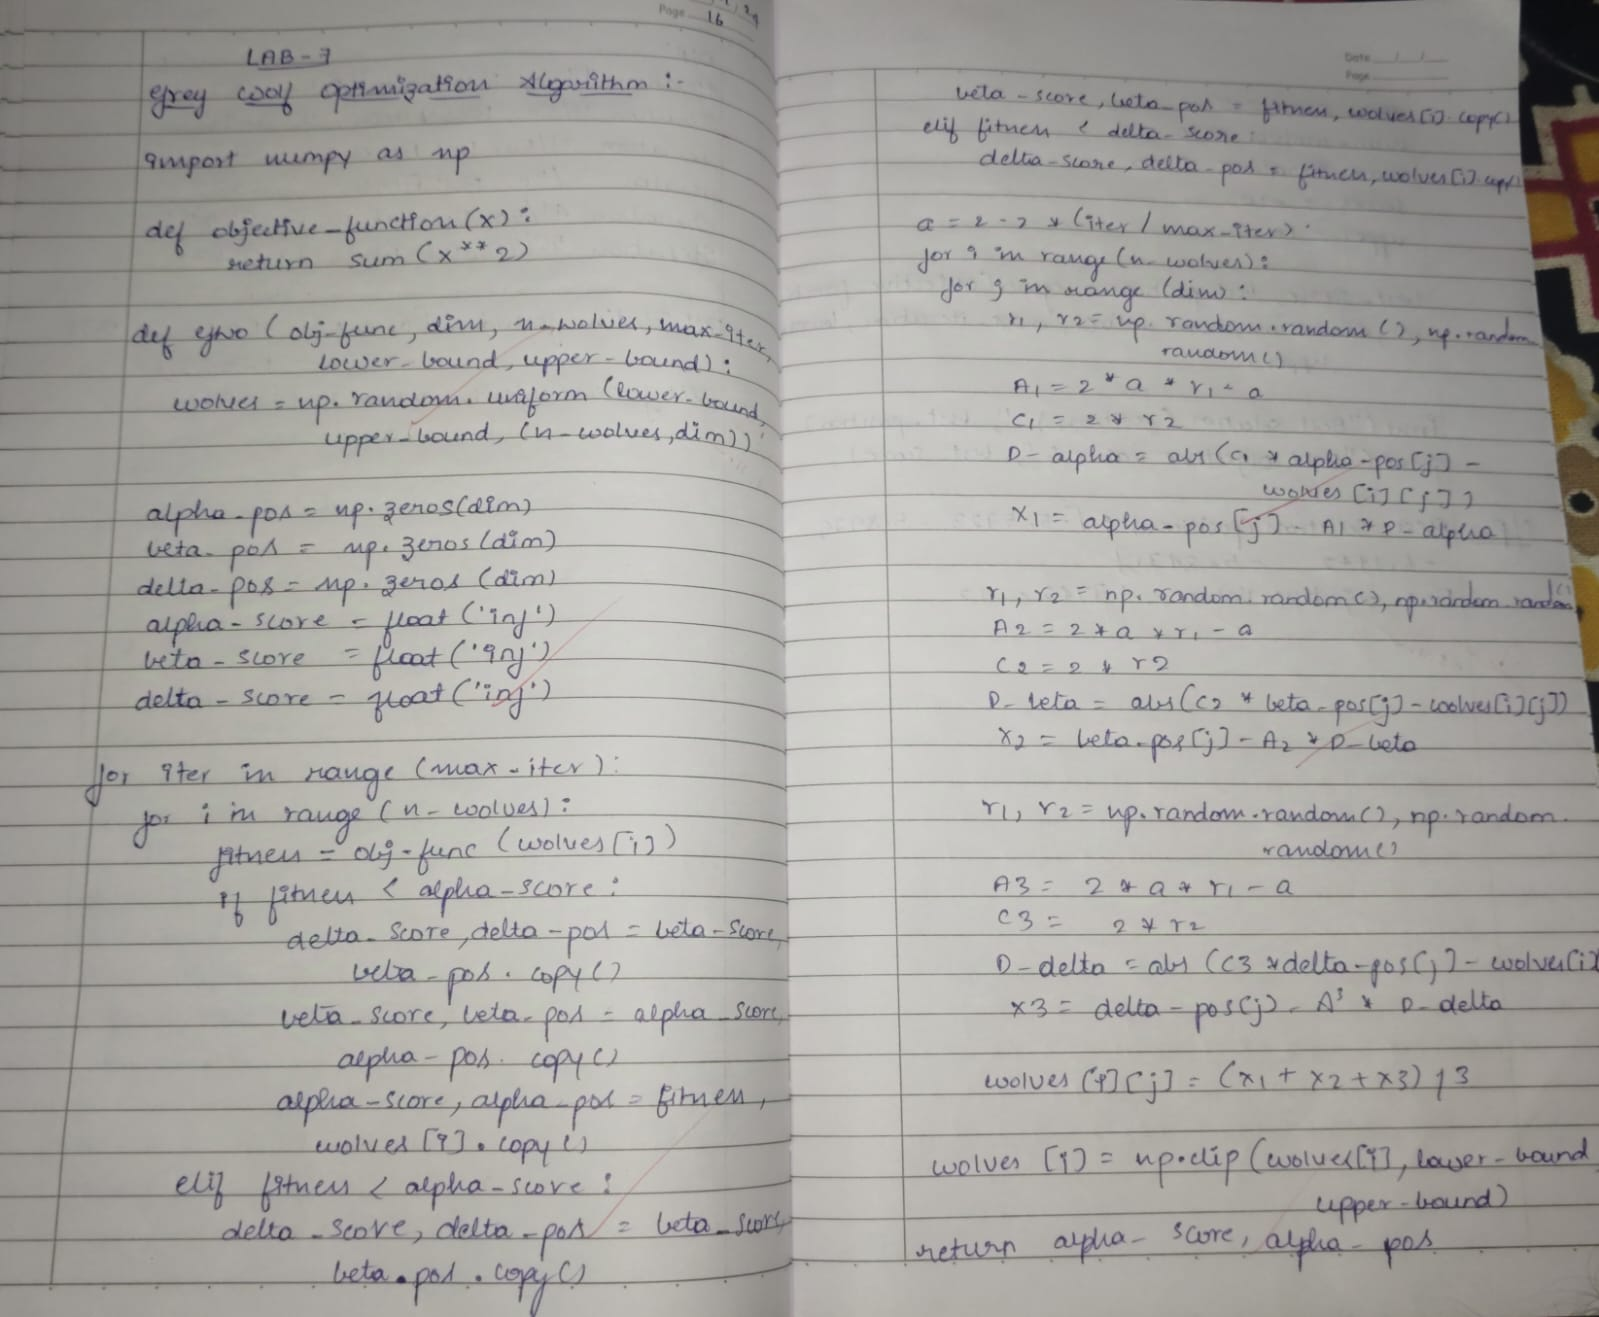 Page 16
LAB-7
Grey Wolf Optimization Algorithm :-
import numpy as np
def objective_function(x):
return sum(x**2)
def gwo (obj-func, dim, n-wolves, max-iter,
lower-bound, upper-bound):
wolves = np.random.uniform (lower-bound,
upper-bound, (n-wolves, dim))
alpha-pos = np.zeros(dim)
beta-pos = np.zeros(dim)
delta-pos = np.zeros(dim)
alpha-score = float('inf')
beta-score = float('inf')
delta-score = float('inf')
for iter in range (max-iter):
for i in range (n-wolves):
fitness = obj-func (wolves[i])
if fitness < alpha-score:
delta-score, delta-pos = beta-score,
beta-pos.copy()
beta-score, beta-pos = alpha-score,
alpha-pos.copy()
alpha-score, alpha-pos = fitness,
wolves[i].copy()
elif fitness < alpha-score:
delta-score, delta-pos = beta-score,
beta.pos.copy()
Date / /
Page
beta-score, beta-pos = fitness, wolves[i].copy()
elif fitness < delta-score:
delta-score, delta-pos = fitness, wolves[i].copy()
a = 2-2 * (iter / max-iter)
for i in range (n-wolves):
for j in range (dim):
r1, r2 = np.random.random(), np.random.
random()
A1 = 2 * a * r1 - a
C1 = 2 * r2
D-alpha = abs(C1 * alpha-pos[j] -
wolves[i][j])
X1 = alpha-pos[j] - A1 * D-alpha
r1, r2 = np.random.random(), np.random.random()
A2 = 2 * a * r1 - a
C2 = 2 * r2
D-beta = abs(C2 * beta-pos[j] - wolves[i][j])
X2 = beta-pos[j] - A2 * D-beta
r1, r2 = np.random.random(), np.random.
random()
A3 = 2 * a * r1 - a
C3 = 2 * r2
D-delta = abs (C3 * delta-pos[j] - wolves[i]
X3 = delta-pos[j] - A3 * D-delta
wolves[i][j] = (X1 + X2 + X3) / 3
wolves [i] = np.clip(wolves[i], lower-bound
upper-bound)
return alpha-score, alpha-pos